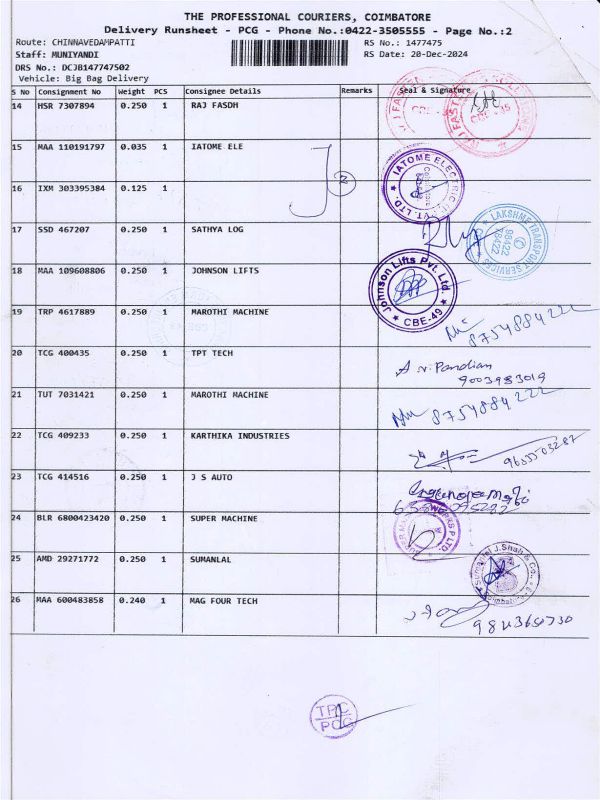 THE PROFESSIONAL COURIERS, COIMBATORE
Delivery Runsheet - PCG - Phone No.:0422-3505555 - Page No.:2
Route: CHINNAVEDAMPATTI RS No.: 1477475
Staff: MUNIYANDI RS Date: 20-Dec-2024
DRS No.: DCJB147747502
Vehicle: Big Bag Delivery
S No Consignment No Weight PCS Consignee Details Remarks Seal & Signature
14 HSR 7307894 0.250 1 RAJ FASDH
15 MAA 110191797 0.035 1 IATOME ELE
IATOME ELECTRIC (I) PVT. LTD.
2
16 IXM 303395384 0.125 1
17 SSD 467207 0.250 1 SATHYA LOG
LAKSHMI TRANSPORT SERVICES
98422
78422
18 MAA 109608806 0.250 1 JOHNSON LIFTS
Johnson Lifts Pvt. Ltd.
CBE-49
19 TRP 4617889 0.250 1 MAROTHI MACHINE
8754884222
20 TCG 400435 0.250 1 TPT TECH
A.V. Pandian
9003983019
21 TUT 7031421 0.250 1 MAROTHI MACHINE
8754884222
22 TCG 409233 0.250 1 KARTHIKA INDUSTRIES
9655503287
23 TCG 414516 0.250 1 J S AUTO
24 BLR 6800423420 0.250 1 SUPER MACHINE
25 AMD 29271772 0.250 1 SUMANLAL
Sumanlal J. Shah & Co.,
Coimbatore
26 MAA 600483858 0.240 1 MAG FOUR TECH
TPC
PCG